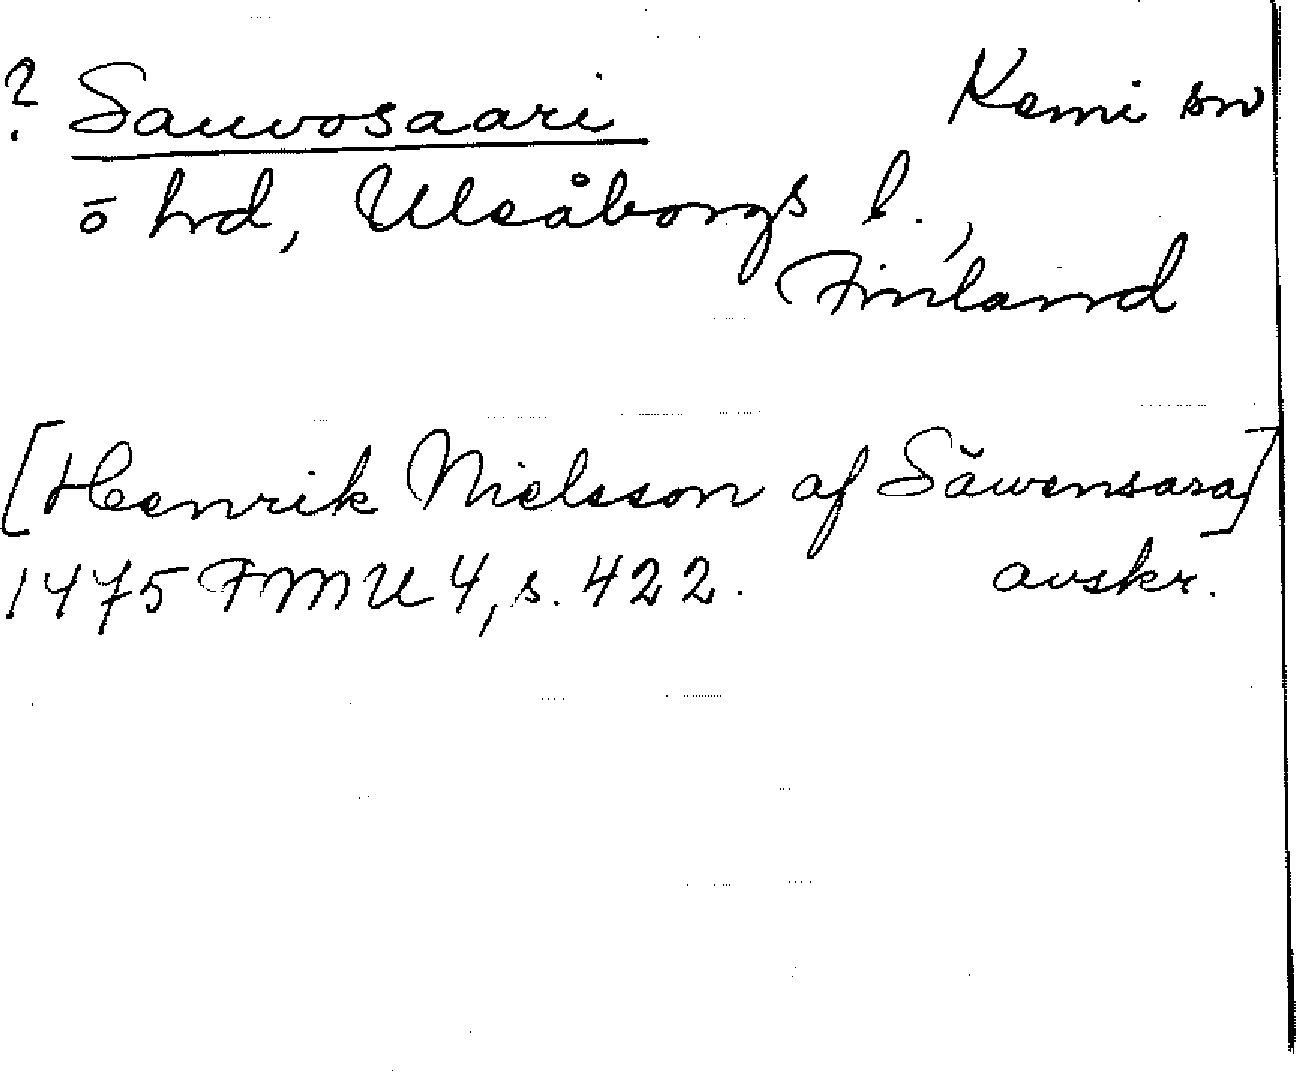 ? Sauvosaari Kemi sn
ō hrd, Uleåborgs l.,
Finland
[Henrik Nielsson af Säwensara]
1475 FMU 4, s. 422. avskr.